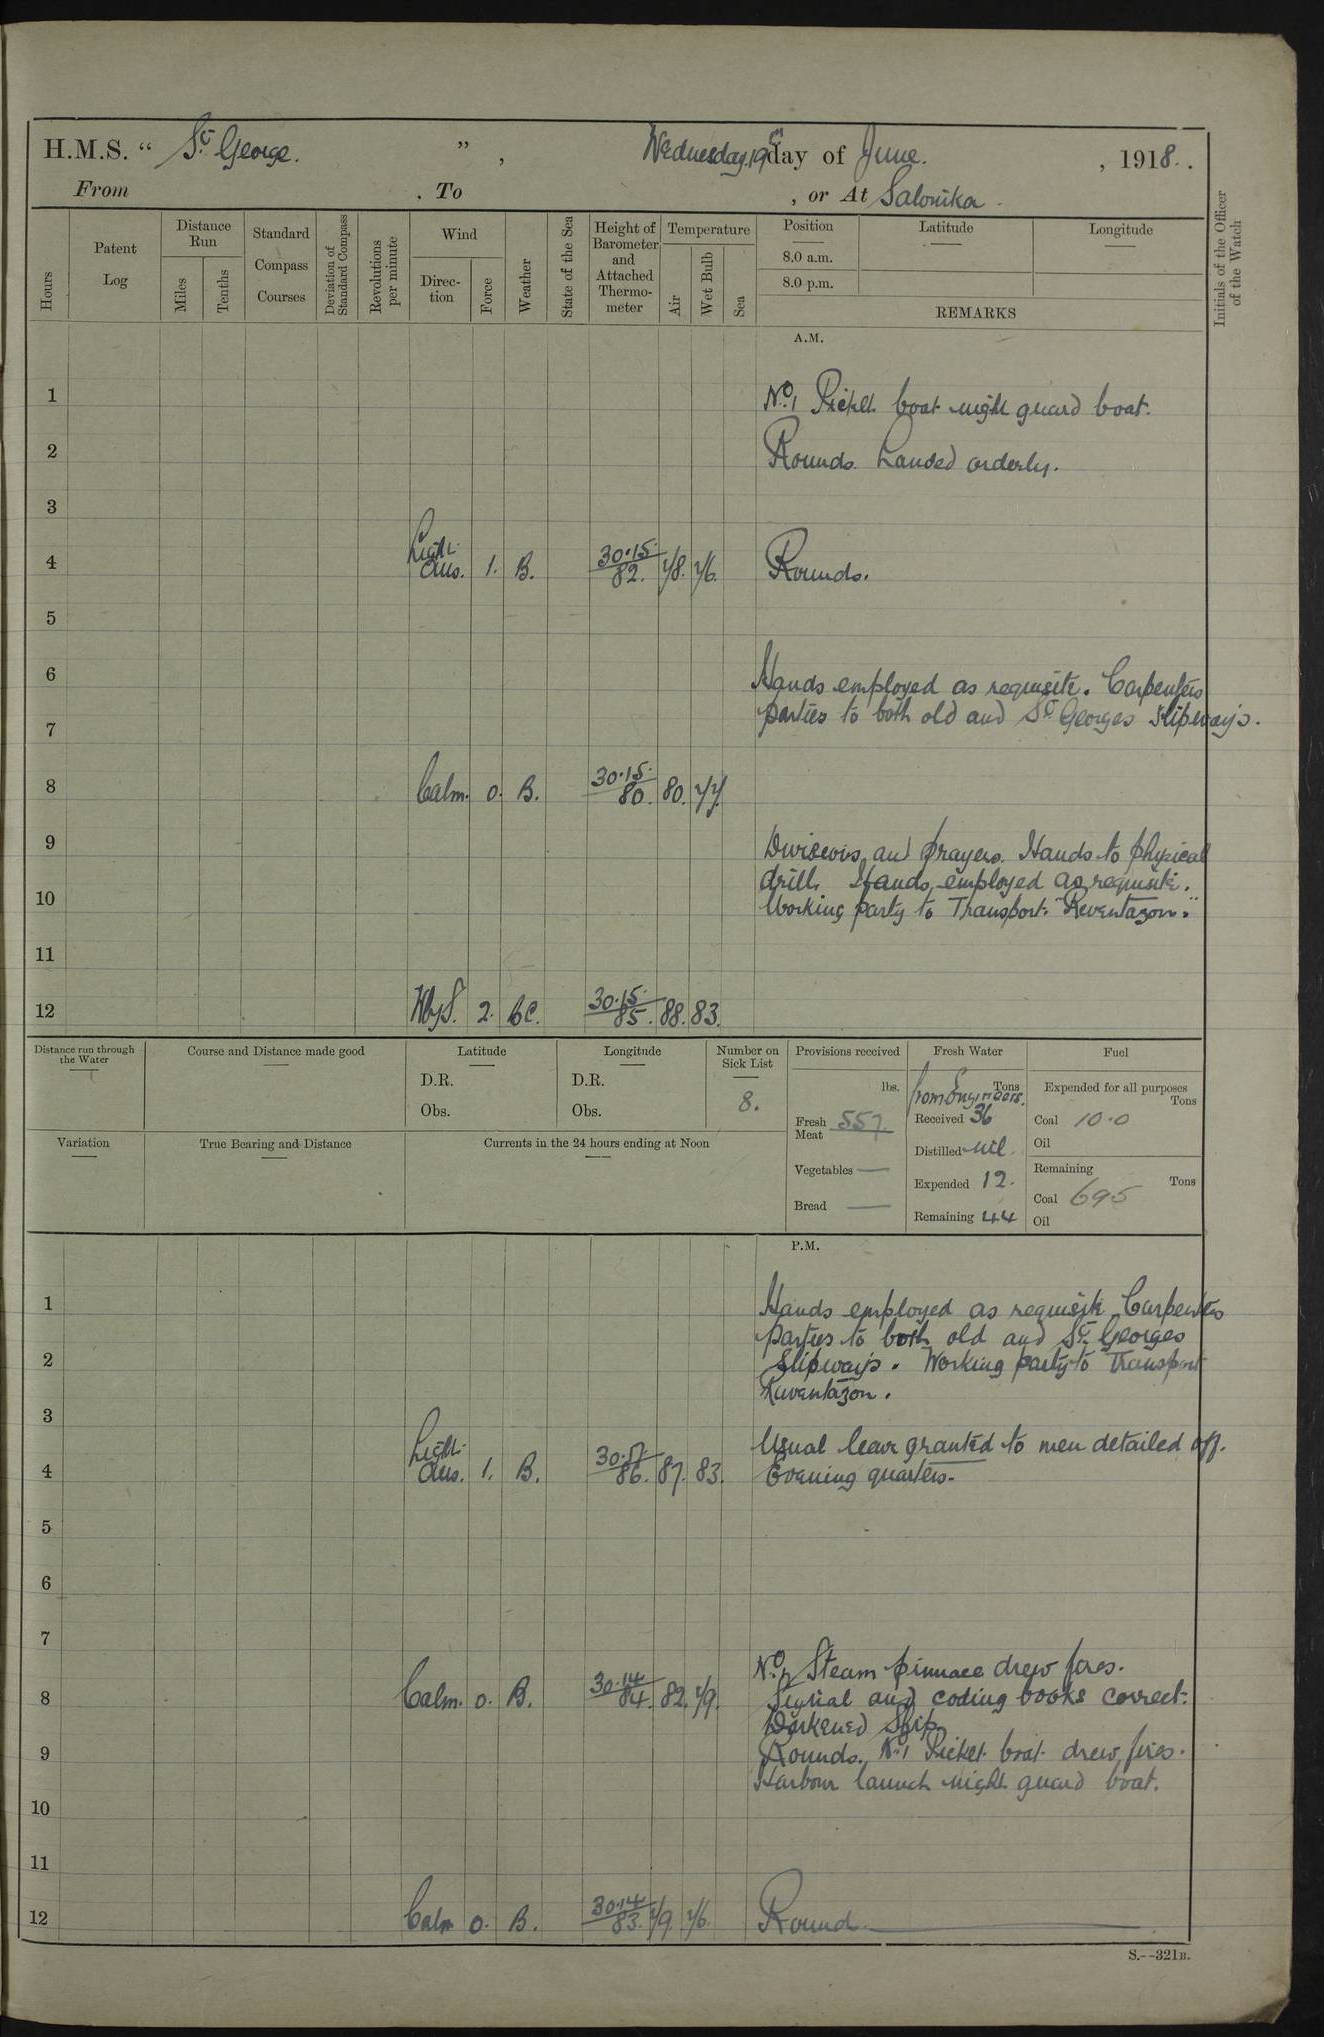 H.M.S. “ St George. ” , Wednesday 19th day of June. , 1918. .
From . To , or At Salonika .
Hours
Patent Log
Distance Run
Miles
Tenths
Standard Compass Courses
Deviation of Standard Compass
Revolutions per minute
Wind
Direction
Force
Weather
State of the Sea
Height of Barometer and Attached Thermometer
Temperature
Air
Wet Bulb
Sea
Position
8.0 a.m.
8.0 p.m.
Latitude
Longitude
REMARKS
Initials of the Officer of the Watch
A.M.
1 No. 1 Picket boat night guard boat.
2 Rounds. Landed orderly.
3
4 Light airs. 1. B. 30.15. 82. 78. 76. Rounds.
5
6 Hands employed as requisite. Carpenters
parties to both old and St Georges slipways.
7
8 Calm. 0. B. 30.15. 80. 80. 77.
9 Divisions and prayers. Hands to physical
drill. Hands employed as requisite.
10 Working party to Transport. "Reventazon."
11
12 WbyS. 2. bc. 30.15. 85. 88. 83.
Distance run through the Water
Course and Distance made good
Latitude
D.R.
Obs.
Longitude
D.R.
Obs.
Number on Sick List
8.
Provisions received
lbs.
Fresh Meat 557.
Vegetables —
Bread —
Fresh Water
Tons
from Engineers.
Received 36
Distilled nil.
Expended 12.
Remaining 44
Fuel
Expended for all purposes
Tons
Coal 10.0
Oil
Remaining
Tons
Coal 695
Oil
Variation
True Bearing and Distance
Currents in the 24 hours ending at Noon
P.M.
1 Hands employed as requisite Carpenters
parties to both old and St Georges
2 Slipways. Working party to Transport
Reventazon.
3
Usual leave granted to men detailed off.
4 Light airs. 1. B. 86. 87. 83. Evening quarters.
5
6
7
No. 2 Steam pinnace drew fires.
8 Calm. 0. B. 30.14 84. 82. 79. Signal and coding books correct.
Darkened Ship.
9 Rounds. No 1 Picket boat drew fires.
Harbour launch night guard boat.
10
11
12 Calm 0. B. 30.14 83. 79. 76. Round
S.--321B.